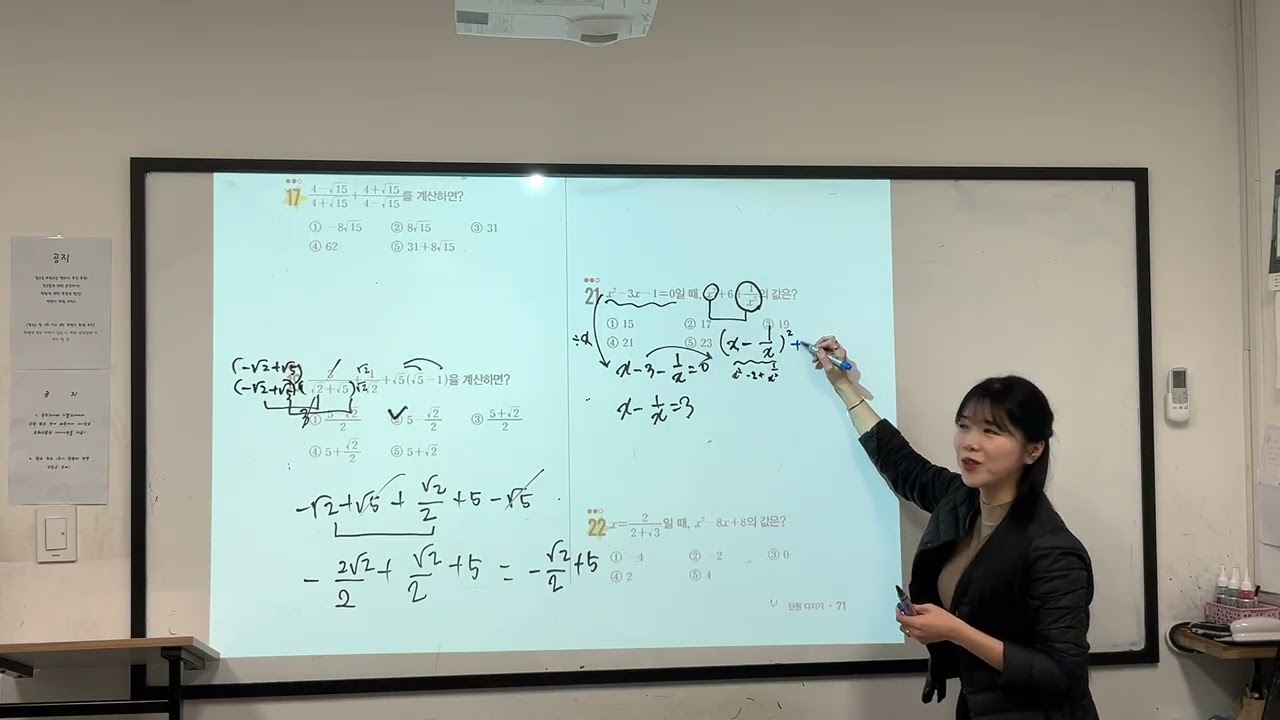 공지
공 지
17 (4-√15)/(4+√15) + (4+√15)/(4-√15) 를 계산하면?
① -8√15 ② 8√15 ③ 31
④ 62 ⑤ 31+8√15
(-√2+√5)
(-√2+√5)(
√2+√5 )√2 √2 +√5(√5-1)을 계산하면?
② 5-√2/2 ③ (5+√2)/2
④ 5+√2/2 ⑤ 5+√2
-√2+√5+√2/2+5-√5
-2√2/2+√2/2+5=-√2/2+5
21 x²-3x-1=0일 때, x²+6+1/x²의 값은?
① 15 ② 17 ③ 19
④ 21 ⑤ 23
÷x
(x-1/x)²+
x²-2+1/x²
x-3-1/x=0
x-1/x=3
22 x=2/(2+√3)일 때, x²-8x+8의 값은?
① -4 ② -2 ③ 0
④ 2 ⑤ 4
단원 다지기 • 71